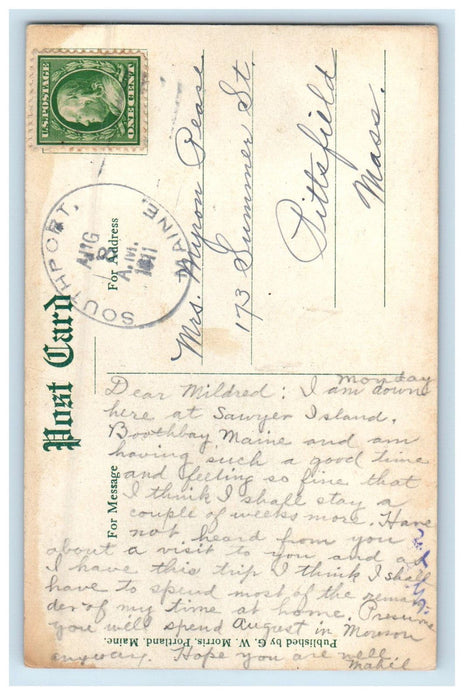 U.S. POSTAGE
ONE CENT
SOUTHPORT,
MAINE
AUG
8
A.M.
1911
Post Card
For Address
Mrs. Myron Pease
173 Summer St.
Pittsfield
Mass.
For Message
Monday
Dear Mildred: I am down
here at Sawyer Island,
Boothbay Maine and am
having such a good time
and feeling so fine that
I think I shall stay a
couple of weeks more. Have
not heard from you
about a visit to you and as
I have this trip I think I shall
have to spend most of the remain
der of my time at home. Presume
you will spend August in Monson
anyway. Hope you are well
Mabel
Published by G. W. Morris, Portland, Maine.